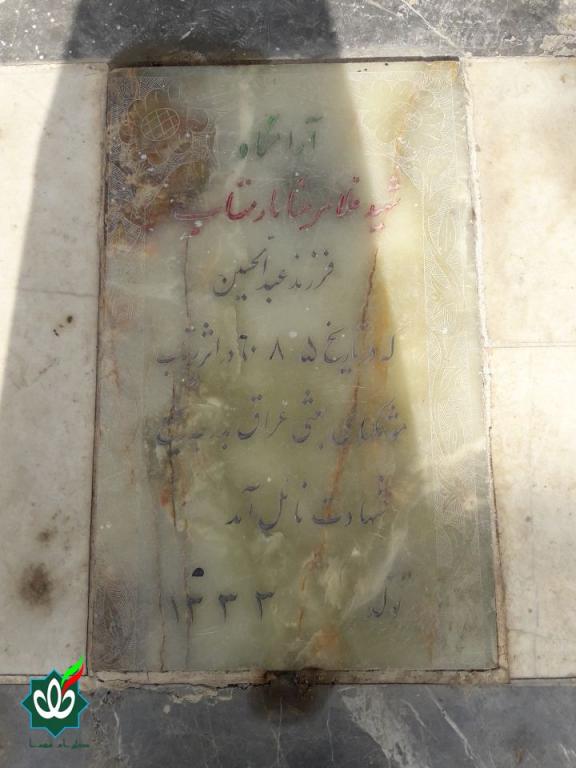 آرامگاه
شهید غلامرضا بادمتاب
فرزند عبدالحسین
که در تاریخ ۵ ۸ ۶۰ در اثر پرتاب
موشکهای بعثی عراق بدرجه رفیع
شهادت نائل آمد
تولد ۱۳۳۳